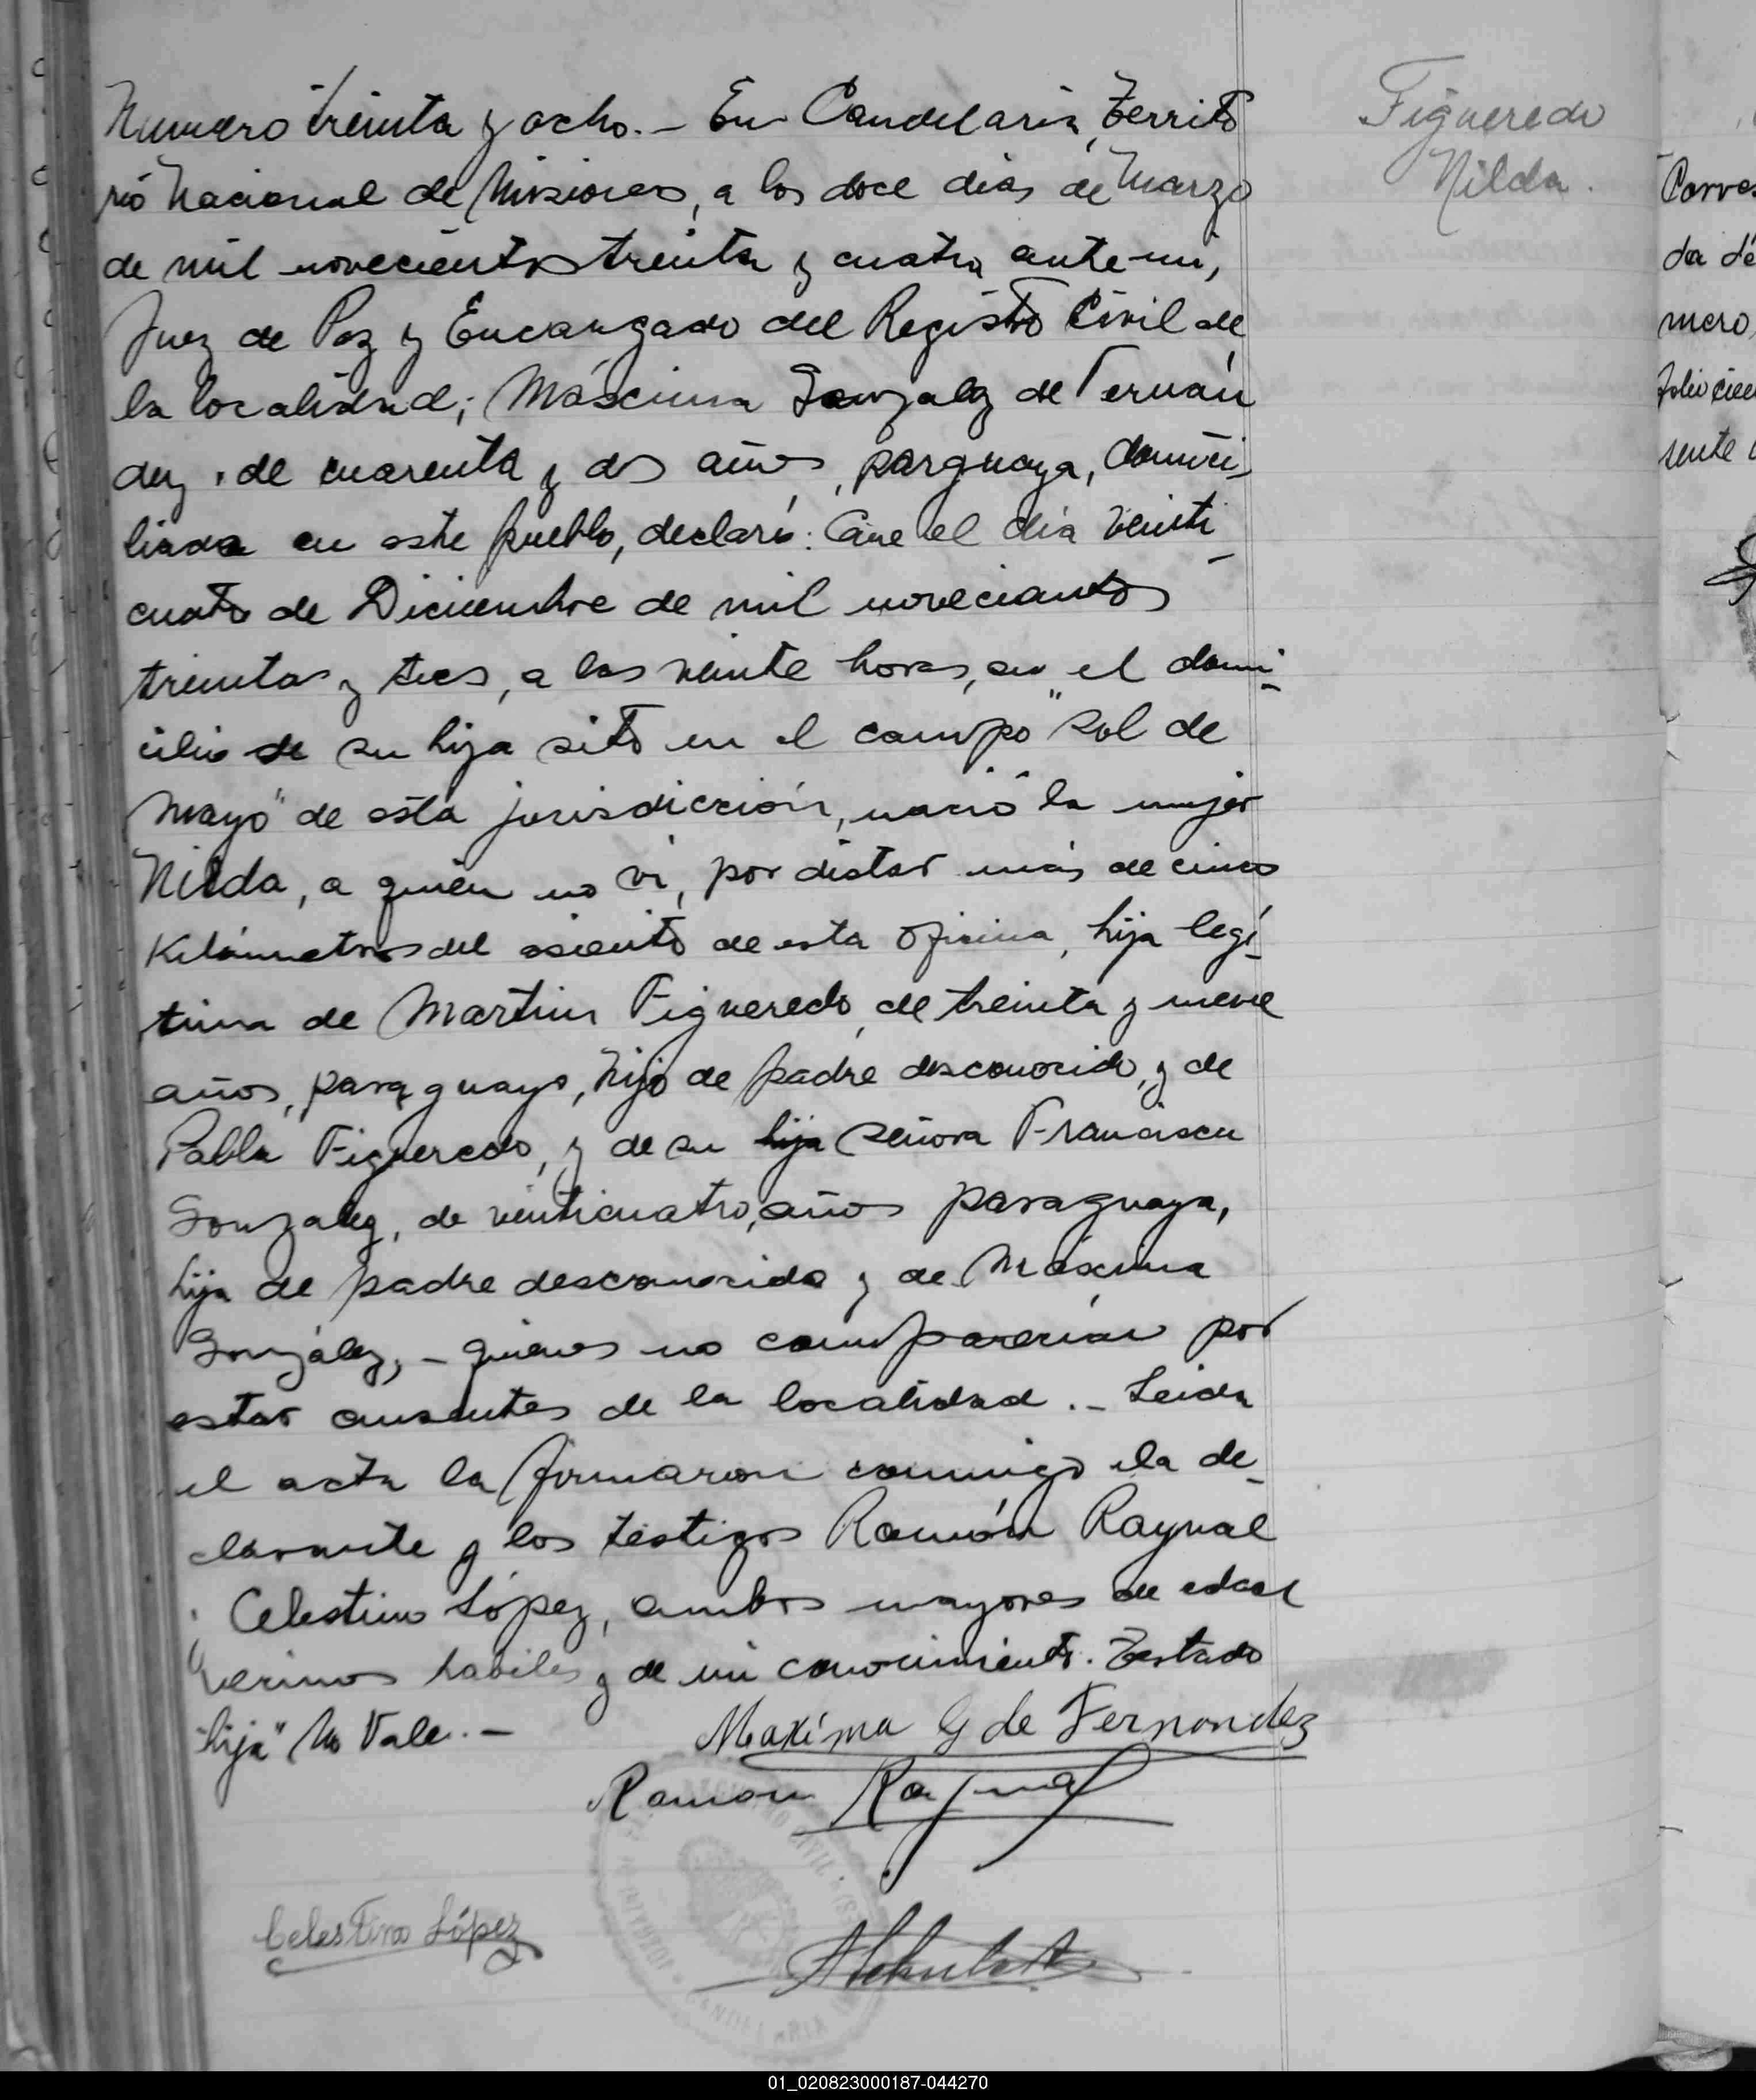 Numero treinta y ocho.- En Candelaria, Territo
rio Nacional de Misiones, a los doce dias de Marzo
de mil novecientos treinta y cuatro ante mi,
Juez de Paz y Encargado del Registro Civil de
la localidad; Máscima Gonzalez de Fernán
dez, de cuarenta y dos años, parguaya, domici
liada en este pueblo, declaró: Que el dia veinti
cuatro de Diciembre de mil novecientos
treinta y tres, a las veinte horas, en el domi-
cilio de su hija sito en el campo "Sol de
Mayo" de esta jurisdicción, nació la mujer
Nilda, a quien no vi, por distar más de cinco
Kilómetros del asiento de esta Oficina, hija legí-
tima de Martin Figueredo, de treinta y nueve
años, paraguayo, hijo de padre desconocido, y de
Pabla Figueredo, y de su hija señora Francisca
Gonzalez, de veinticuatro, años paraguaya,
hija de padre desconocido y de Máscima
González, - quienes no comparecian por
estar ausentes de la localidad.- Leida
el acta la firmaron conmigo la de-
clarante y los testigos Ramón Raynal
Celestino López, ambos mayores de edad
vecinos habiles y de mi conocimiento. Testado
"hija" No Vale.-
Maxíma G de Fernandez
Ramon Raynal
Celestino López
Figueredo
Nilda.
Corres
da de
mero,
folio
sente
CANDELARIA
01_020823000187-044270